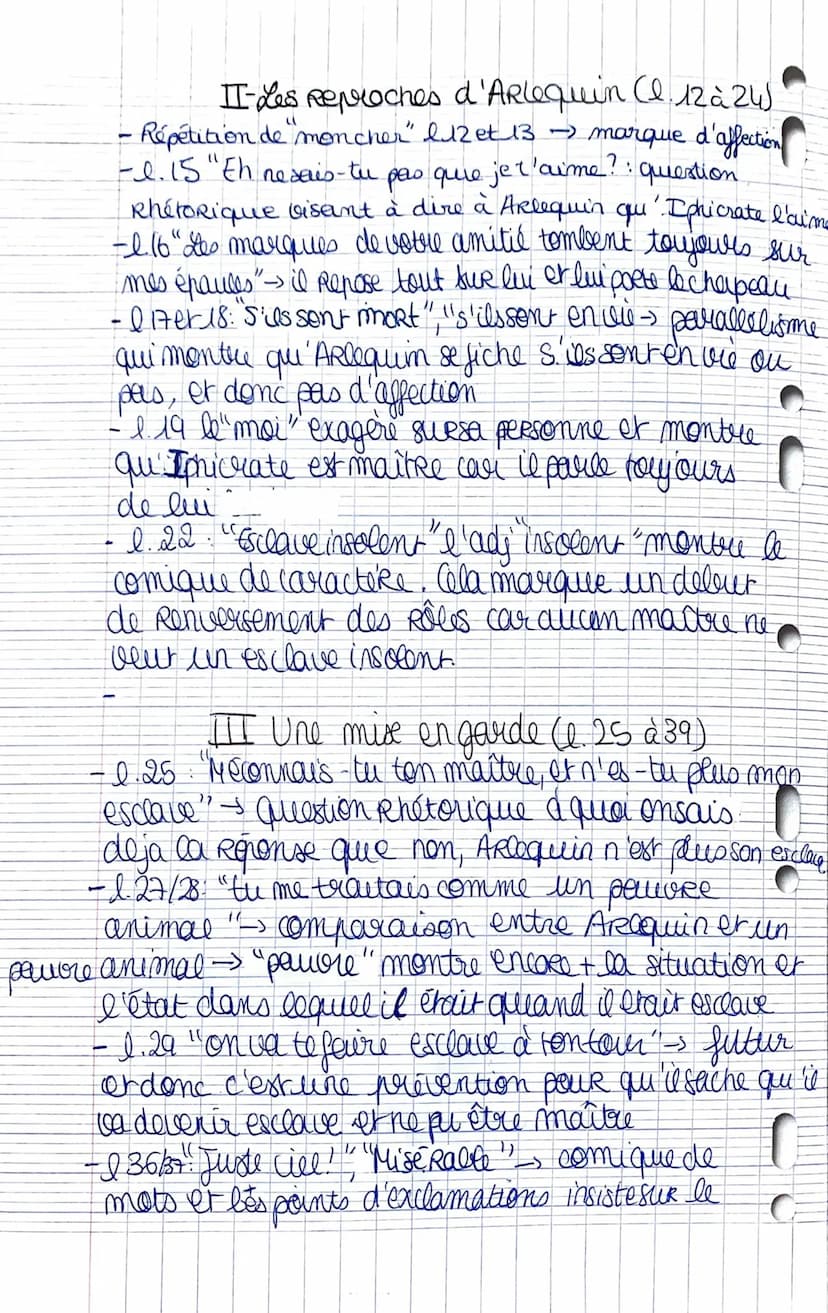 II-Les reproches d'Arlequin (l.12 à 24)
- Répétition de "mon cher" l.12 et 13 → marque d'affection
- l.15 "Eh ne sais-tu pas que je t'aime? : question
Rhétorique visant à dire à Arlequin qu'Iphicrate l'aime
- l.16 "Les marques de votre amitié tombent toujours sur
mes épaules" → il repose tout sur lui et lui porte le chapeau
- l 17 et 18: "S'ils sont mort", "s'ils sont en vie → parallélisme
qui montre qu'Arlequin se fiche s'ils sont en vie ou
pas, et donc pas d'affection
- l.19 le "moi" exagère sur sa personne et montre
qu'Iphicrate est maître car il parle toujours
de lui
- l.22 : "Esclave insolent" l'adj "insolent" montre le
comique de caractère. Cela marque un début
de Renversement des Rôles car aucun maître ne
veut un esclave insolent.
-
III Une mise en garde (l.25 à 39)
- l.25 : "Méconnais-tu ton maître, et n'es-tu plus mon
esclave" → Question Rhétorique à quoi on sais
deja la Réponse que non, Arlequin n'est plus son esclave
- l.27/28: "tu me traitais comme un pauvre
animal" → comparaison entre Arlequin et un
pauvre animal → "pauvre" montre encore + la situation et
l'état dans lequel il était quand il était esclave
- l.29 "on va te faire esclave à ton tour" → futur
et donc c'est une prévention pour qu'il sache qu'il
va devenir esclave et ne pu être maître
- l 36/37: "Juste ciel!", "Misérable" → comique de
mots et les points d'exclamations insiste sur le